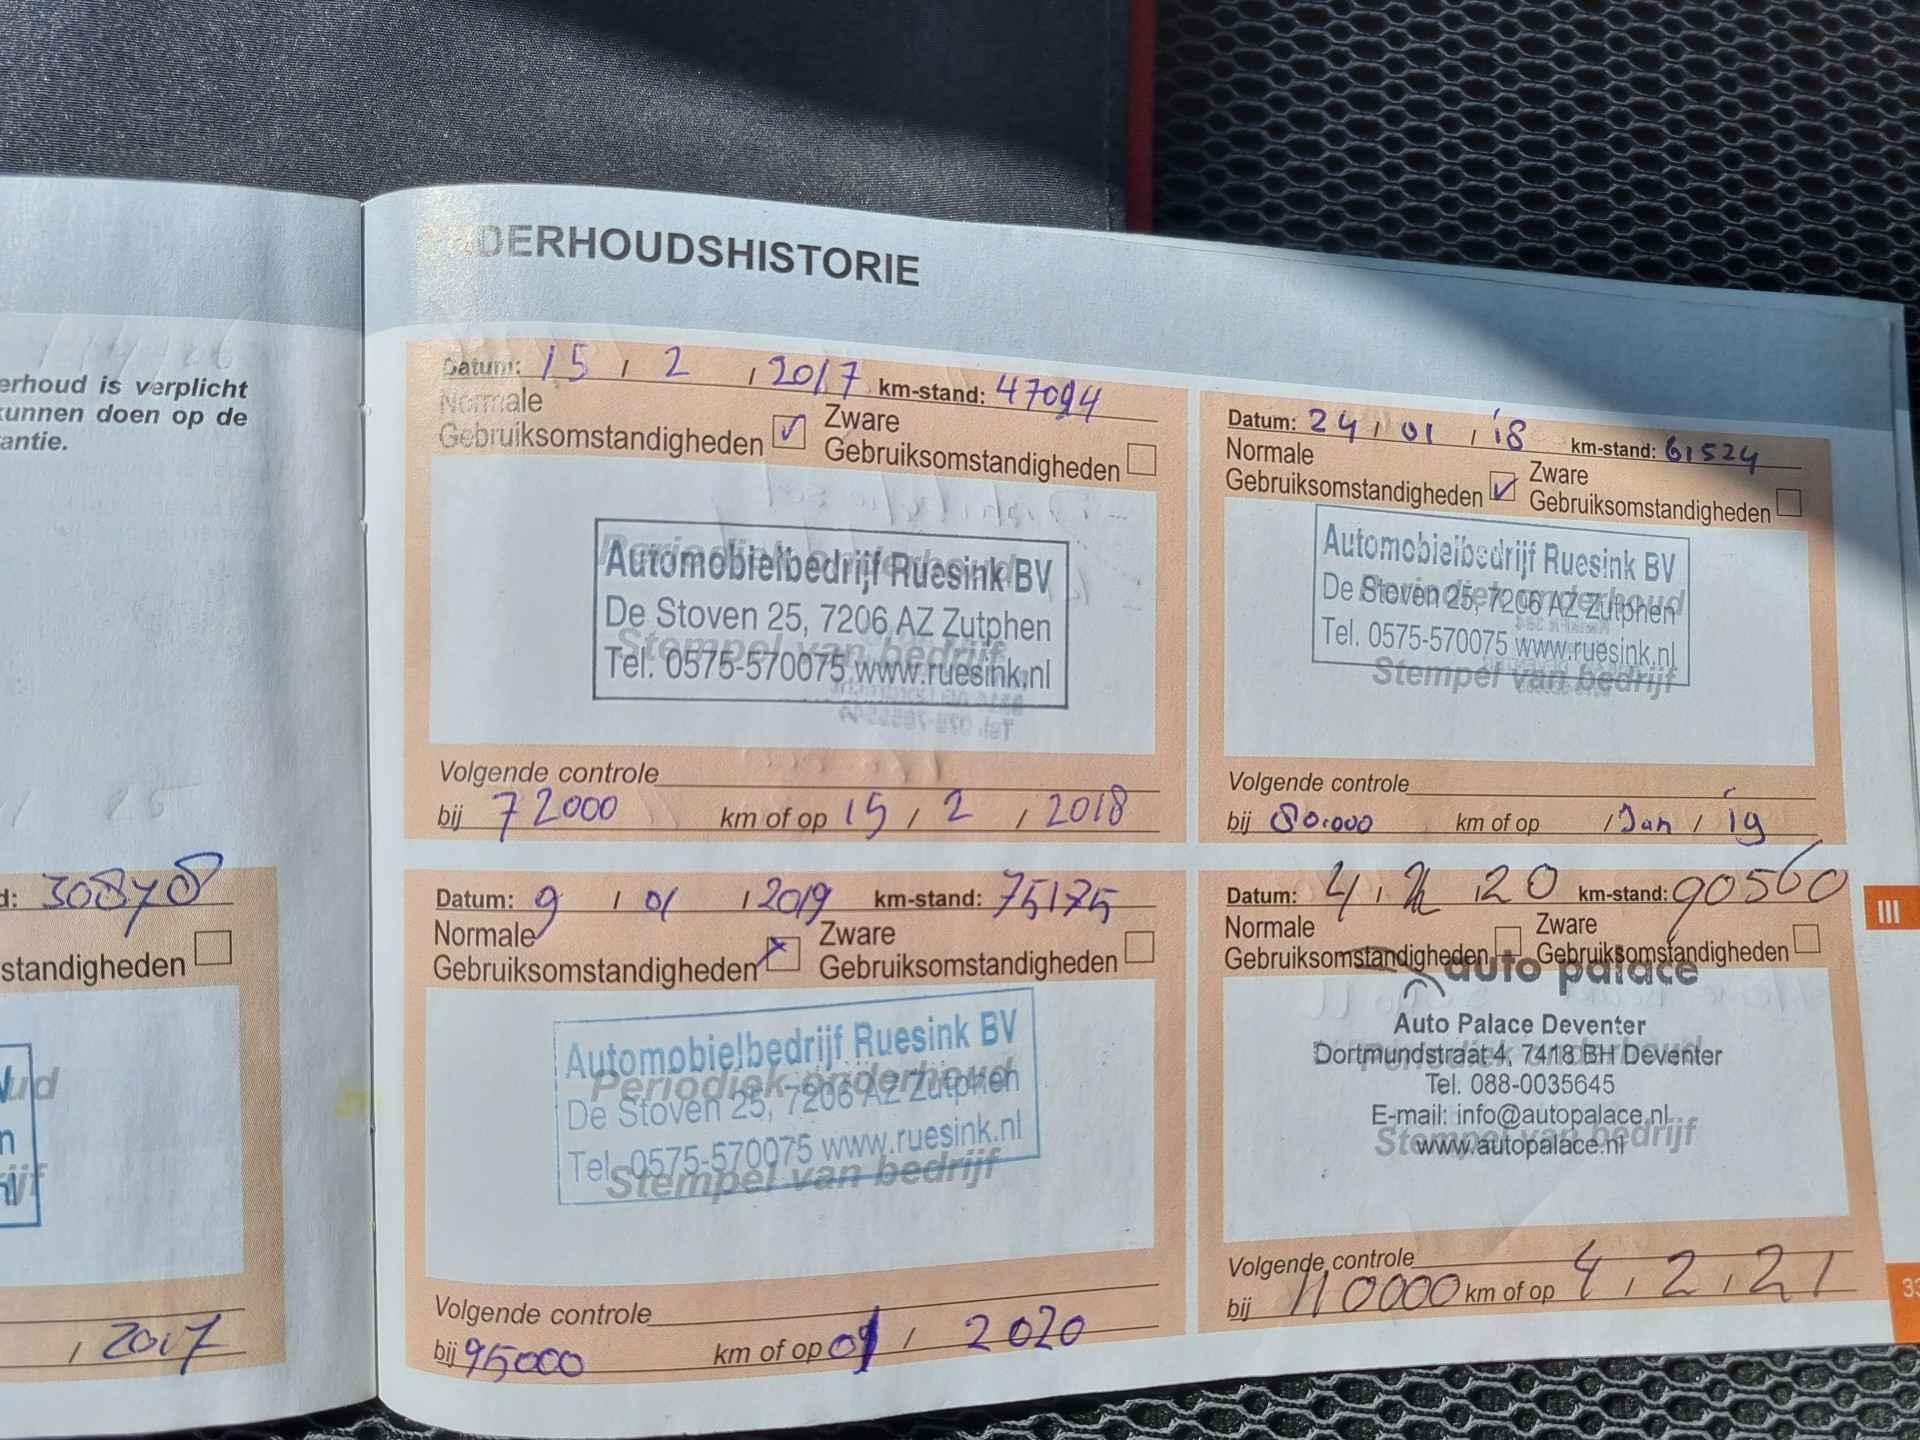 erhoud is verplicht
kunnen doen op de
antie.
d: 30878
standigheden
ud
n
rijf
, 2017
ONDERHOUDSHISTORIE
Datum: 15 , 2 , 2017 km-stand: 47094
Normale
Gebruiksomstandigheden
Zware
Gebruiksomstandigheden
Periodiek onderhoud
Automobielbedrijf Ruesink BV
De Stoven 25, 7206 AZ Zutphen
Stempel van bedrijf
Tel. 0575-570075 www.ruesink.nl
Volgende controle
bij 72000 km of op 15 , 2 , 2018
Datum: 24 , 01 , '18 km-stand: 61524
Normale
Gebruiksomstandigheden
Zware
Gebruiksomstandigheden
Automobielbedrijf Ruesink BV
De Stoven 25, 7206 AZ Zutphen
Periodiek onderhoud
Tel. 0575-570075 www.ruesink.nl
Stempel van bedrijf
Volgende controle
bij 80.000 km of op , Jan , '19
Datum: 9 , 01 , 2019 km-stand: 75175
Normale
Gebruiksomstandigheden
Zware
Gebruiksomstandigheden
Automobielbedrijf Ruesink BV
Periodiek onderhoud
De Stoven 25, 7206 AZ Zutphen
Tel. 0575-570075 www.ruesink.nl
Stempel van bedrijf
Volgende controle
bij 95000 km of op 01 , 2020
Datum: 4 , 2 , 20 km-stand: 90560
Normale
Gebruiksomstandigheden
Zware
Gebruiksomstandigheden
auto palace
Auto Palace Deventer
Dortmundstraat 4, 7418 BH Deventer
Periodiek onderhoud
Tel. 088-0035645
E-mail: info@autopalace.nl
Stempel van bedrijf
www.autopalace.nl
Volgende controle
bij 110000 km of op 4 , 2 , 21
III
33